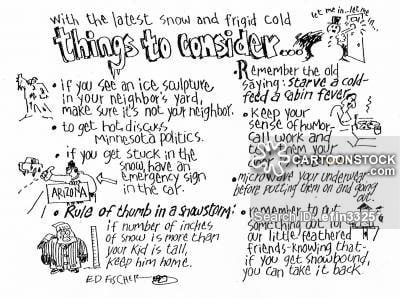 with the latest snow and frigid cold
things to consider....
let me in..let me in...
• if you see an ice sculpture
in your neighbor's yard,
make sure it's not your neighbor.
• to get hot, discuss
Minnesota politics.
• if you get stuck in the
snow, have an
emergency sign
in the car.
ARIZONA
• Rule of thumb in a snowstorm:
if number of inches
of snow is more than
your kid is tall,
keep him home.
ED FISCHER
• Remember the old
saying: starve a cold-
feed a cabin fever
• Keep your
sense of humor-
call work and
them your
• microwave your underwear
before putting them on and going
out.
• remember to put
something out for
our little feathered
friends-knowing that-
if you get snowbound,
you can take it back
© CARTOONSTOCK
.com
Search ID: efin3325